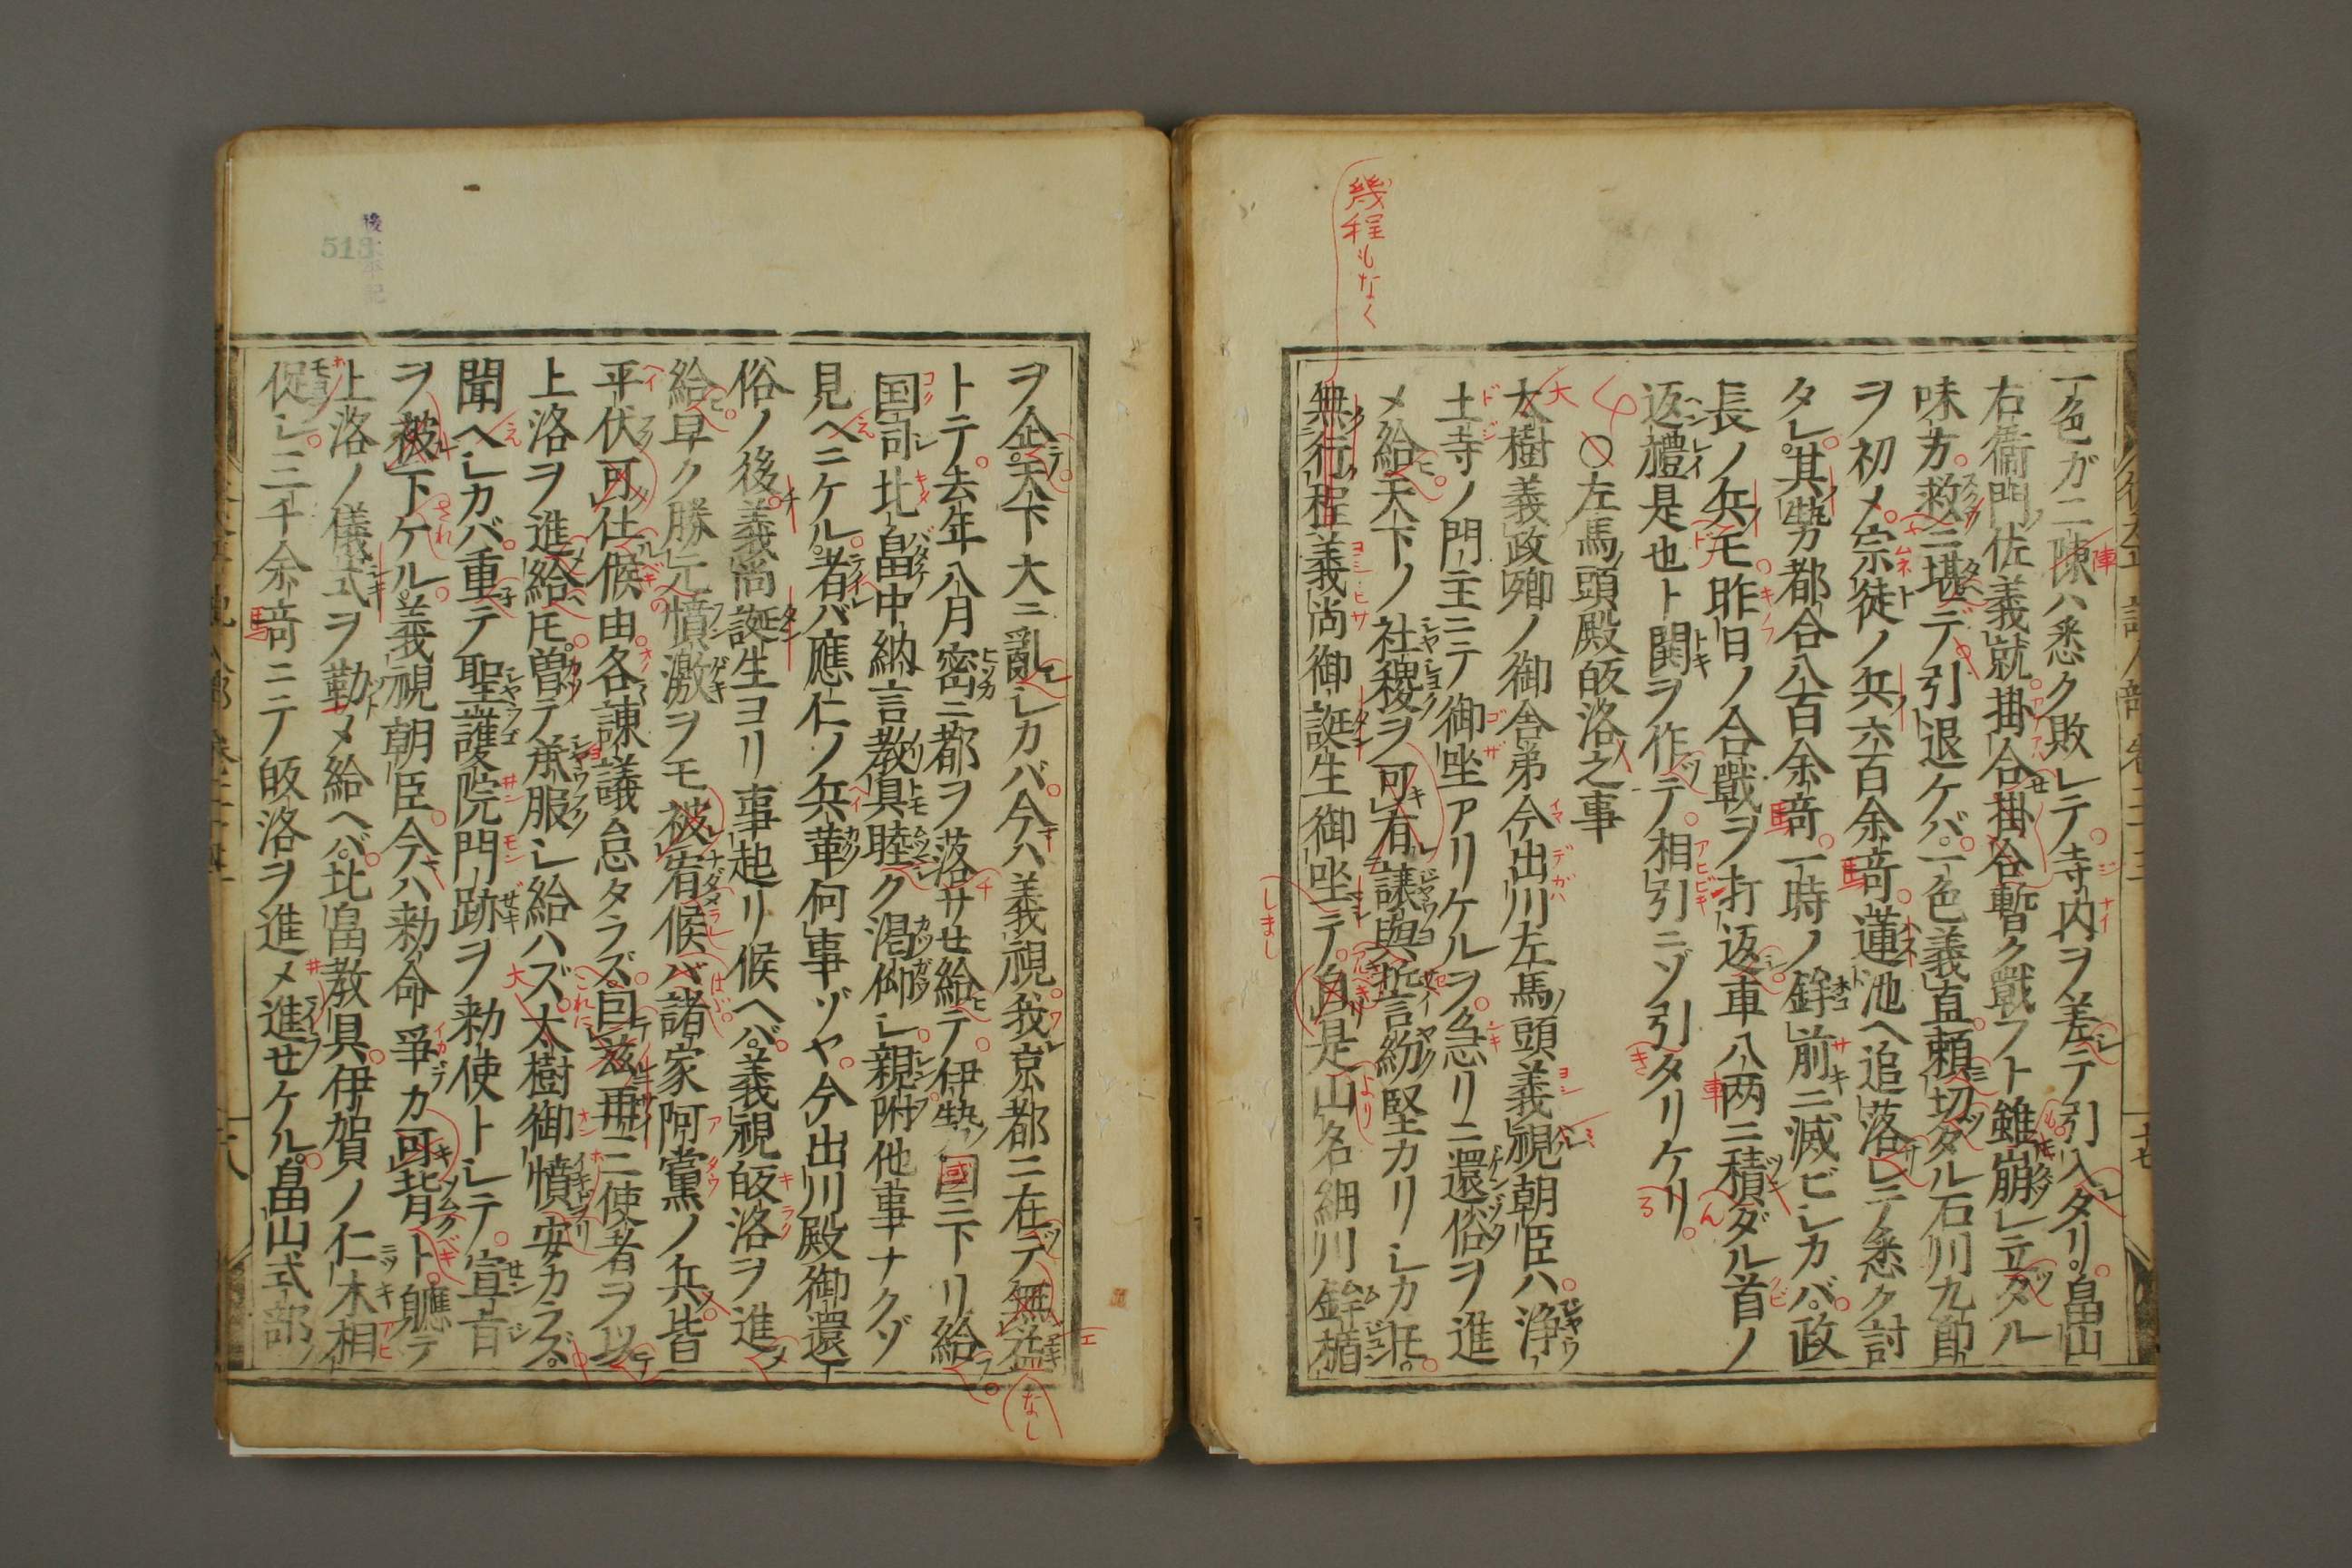 幾程もなく
一色ガ二陳ハ悉ク敗レテ寺内ヲ差テ引入タリ。畠山
右衞門佐義就掛合掛合暫ク戰フト雖崩レ立タル
味方救ニ堪デ引退ケバ。一色義直頼切タル石川九郎
ヲ初メ宗徒ノ兵六百余竒蓮池ヘ追落レテ悉ク討
タレ。其勢都合八百余竒一時ノ鉾前ニ滅ビシカバ。政
長ノ兵モ昨日ノ合戰ヲ打返車八两ニ積ダル首ノ
返禮是也ト関ヲ作テ相引ニゾ引タリケリ
○左馬頭殿皈洛之事
太樹義政卿ノ御舎弟今出川左馬頭義視朝臣ハ浄
土寺ノ門主ニテ御坐アリケルヲ急リニ還俗ヲ進
メ給天下ノ社稷ヲ可有讓與誓言紛堅カリシカ𪜈。
無行程義尚御誕生御坐テ自是山名細川鉾楯
ヲ企天下大ニ亂シカバ今ハ義視我京都ニ在テ無益
トテ去年八月密ニ都ヲ落サセ給テ伊勢國ニ下リ給
国司北畠中納言教具睦ク渇仰シ親附他事ナクゾ
見ヘニケル。者バ應仁ノ兵革何事ゾヤ今出川殿御還
俗ノ後義尚誕生ヨリ事起リ候ヘバ。義視皈洛ヲ進
給早ク勝元憤激ヲモ被宥候バ諸家阿黨ノ兵皆
平伏可仕候由各諫議怠タラズ囙茲再三使者ヲ以
上洛ヲ進給𪜈。曽テ承服シ給ハズ太樹御憤安カラズ。
聞ヘシカバ重テ聖護院門跡ヲ勅使トシテ宣旨
ヲ被下ケル。義視朝臣今ハ勅命爭カ可背ト軈テ
上洛ノ儀式ヲ勒メ給ヘバ。北畠教具伊賀ノ仁木相
促シ三千余竒ニテ皈洛ヲ進メ進セケル。畠山式部